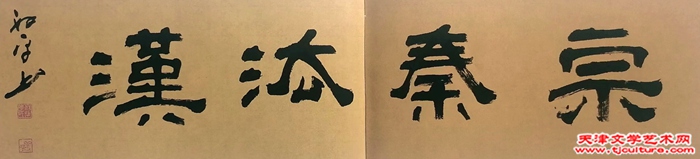 宗秦法漢
天津文学艺术网
www.tjculture.com